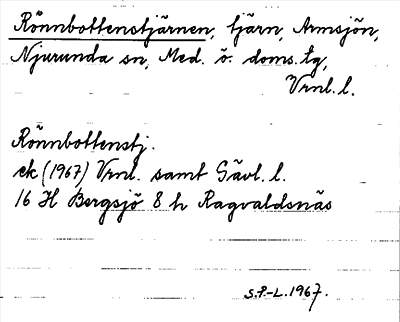 Rönnbottenstjärnen, tjärn, Armsjön,
Njurunda sn, Med. ö. doms. tg,
Vrnl. l.
Rönnbottenstj.
ek (1967) Vrnl. samt Gävl. l.
16 H Bergsjö 8 h Ragvaldsnäs
S.P.-L. 1967.